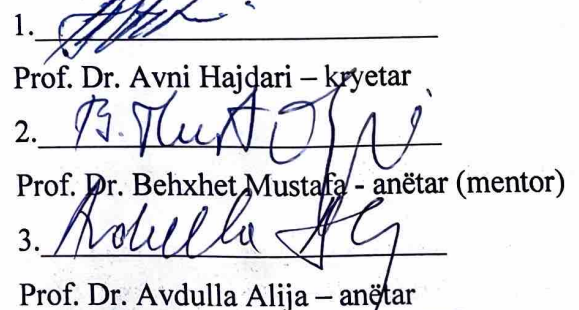 1.
Prof. Dr. Avni Hajdari – kryetar
2. B. Mustafa
Prof. Dr. Behxhet Mustafa - anëtar (mentor)
3. Avdulla
Prof. Dr. Avdulla Alija – anëtar